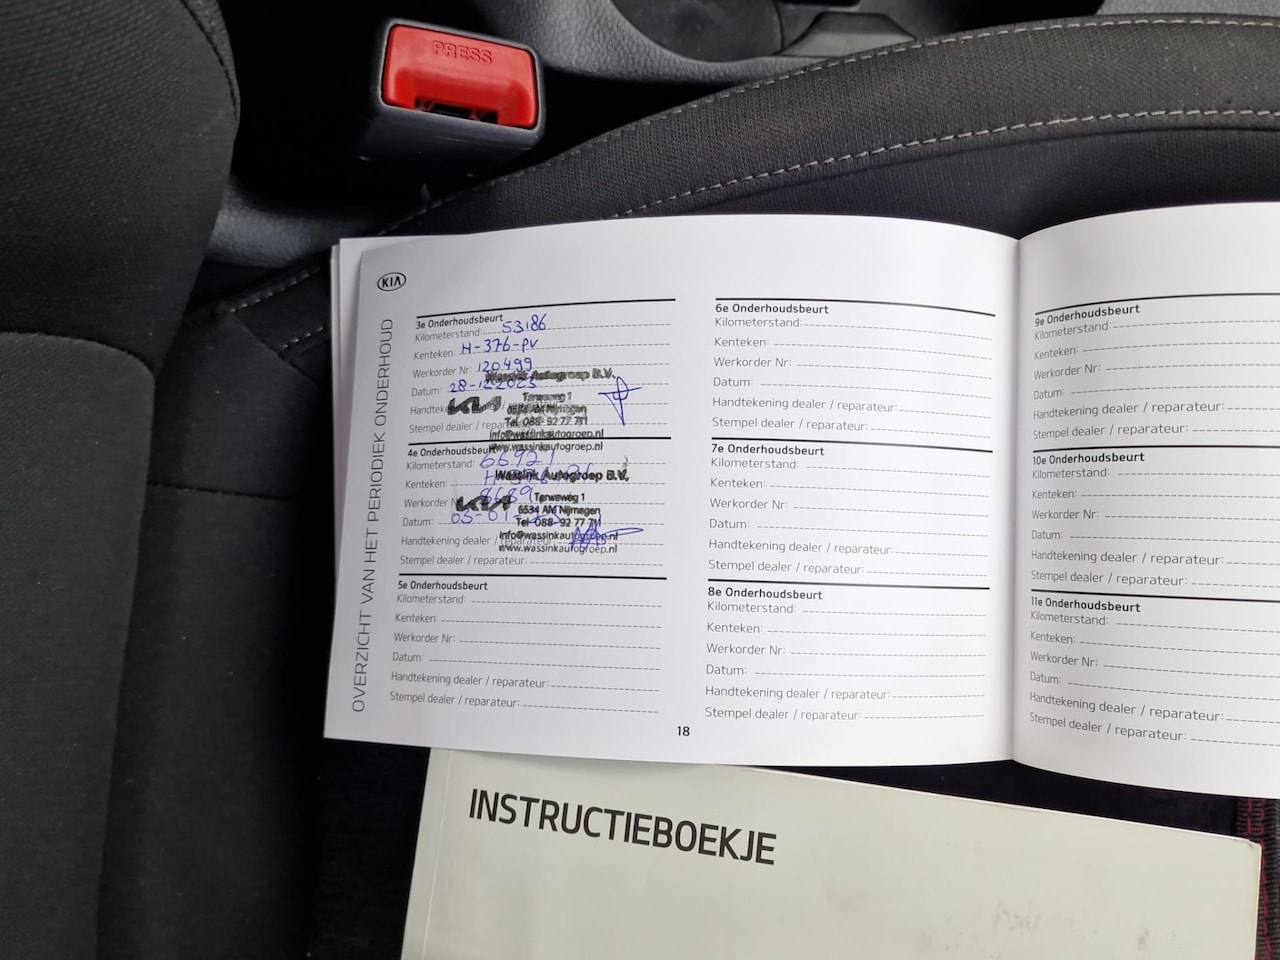 PRESS
KIA
OVERZICHT VAN HET PERIODIEK ONDERHOUD
3e Onderhoudsbeurt
Kilometerstand: 53186
Kenteken: H-376-PV
Werkorder Nr: 120499
Datum: 28-12-2023
Handtekening dealer /
Stempel dealer /
Wassink Autogroep B.V.
KIA
Terweweg 1
6534 AM Nijmegen
Tel 088- 92 77 711
info@wassinkautogroep.nl
www.wassinkautogroep.nl
4e Onderhoudsbeurt
Kilometerstand:
Kenteken:
Werkorder
Datum:
Handtekening dealer / reparateur:
Stempel dealer / reparateur:
Wassink Autogroep B.V.
KIA
Terweweg 1
6534 AM Nijmegen
Tel 088- 92 77 711
info@wassinkautogroep.nl
www.wassinkautogroep.nl
5e Onderhoudsbeurt
Kilometerstand:
Kenteken:
Werkorder Nr:
Datum:
Handtekening dealer / reparateur:
Stempel dealer / reparateur:
6e Onderhoudsbeurt
Kilometerstand:
Kenteken:
Werkorder Nr:
Datum:
Handtekening dealer / reparateur:
Stempel dealer / reparateur:
7e Onderhoudsbeurt
Kilometerstand:
Kenteken:
Werkorder Nr:
Datum:
Handtekening dealer / reparateur:
Stempel dealer / reparateur:
8e Onderhoudsbeurt
Kilometerstand:
Kenteken:
Werkorder Nr:
Datum:
Handtekening dealer / reparateur:
Stempel dealer / reparateur:
18
9e Onderhoudsbeurt
Kilometerstand:
Kenteken:
Werkorder Nr:
Datum:
Handtekening dealer / reparateur:
Stempel dealer / reparateur:
10e Onderhoudsbeurt
Kilometerstand:
Kenteken:
Werkorder Nr:
Datum:
Handtekening dealer / reparateur:
Stempel dealer / reparateur:
11e Onderhoudsbeurt
Kilometerstand:
Kenteken:
Werkorder Nr:
Datum:
Handtekening dealer / reparateur:
Stempel dealer / reparateur:
INSTRUCTIEBOEKJE